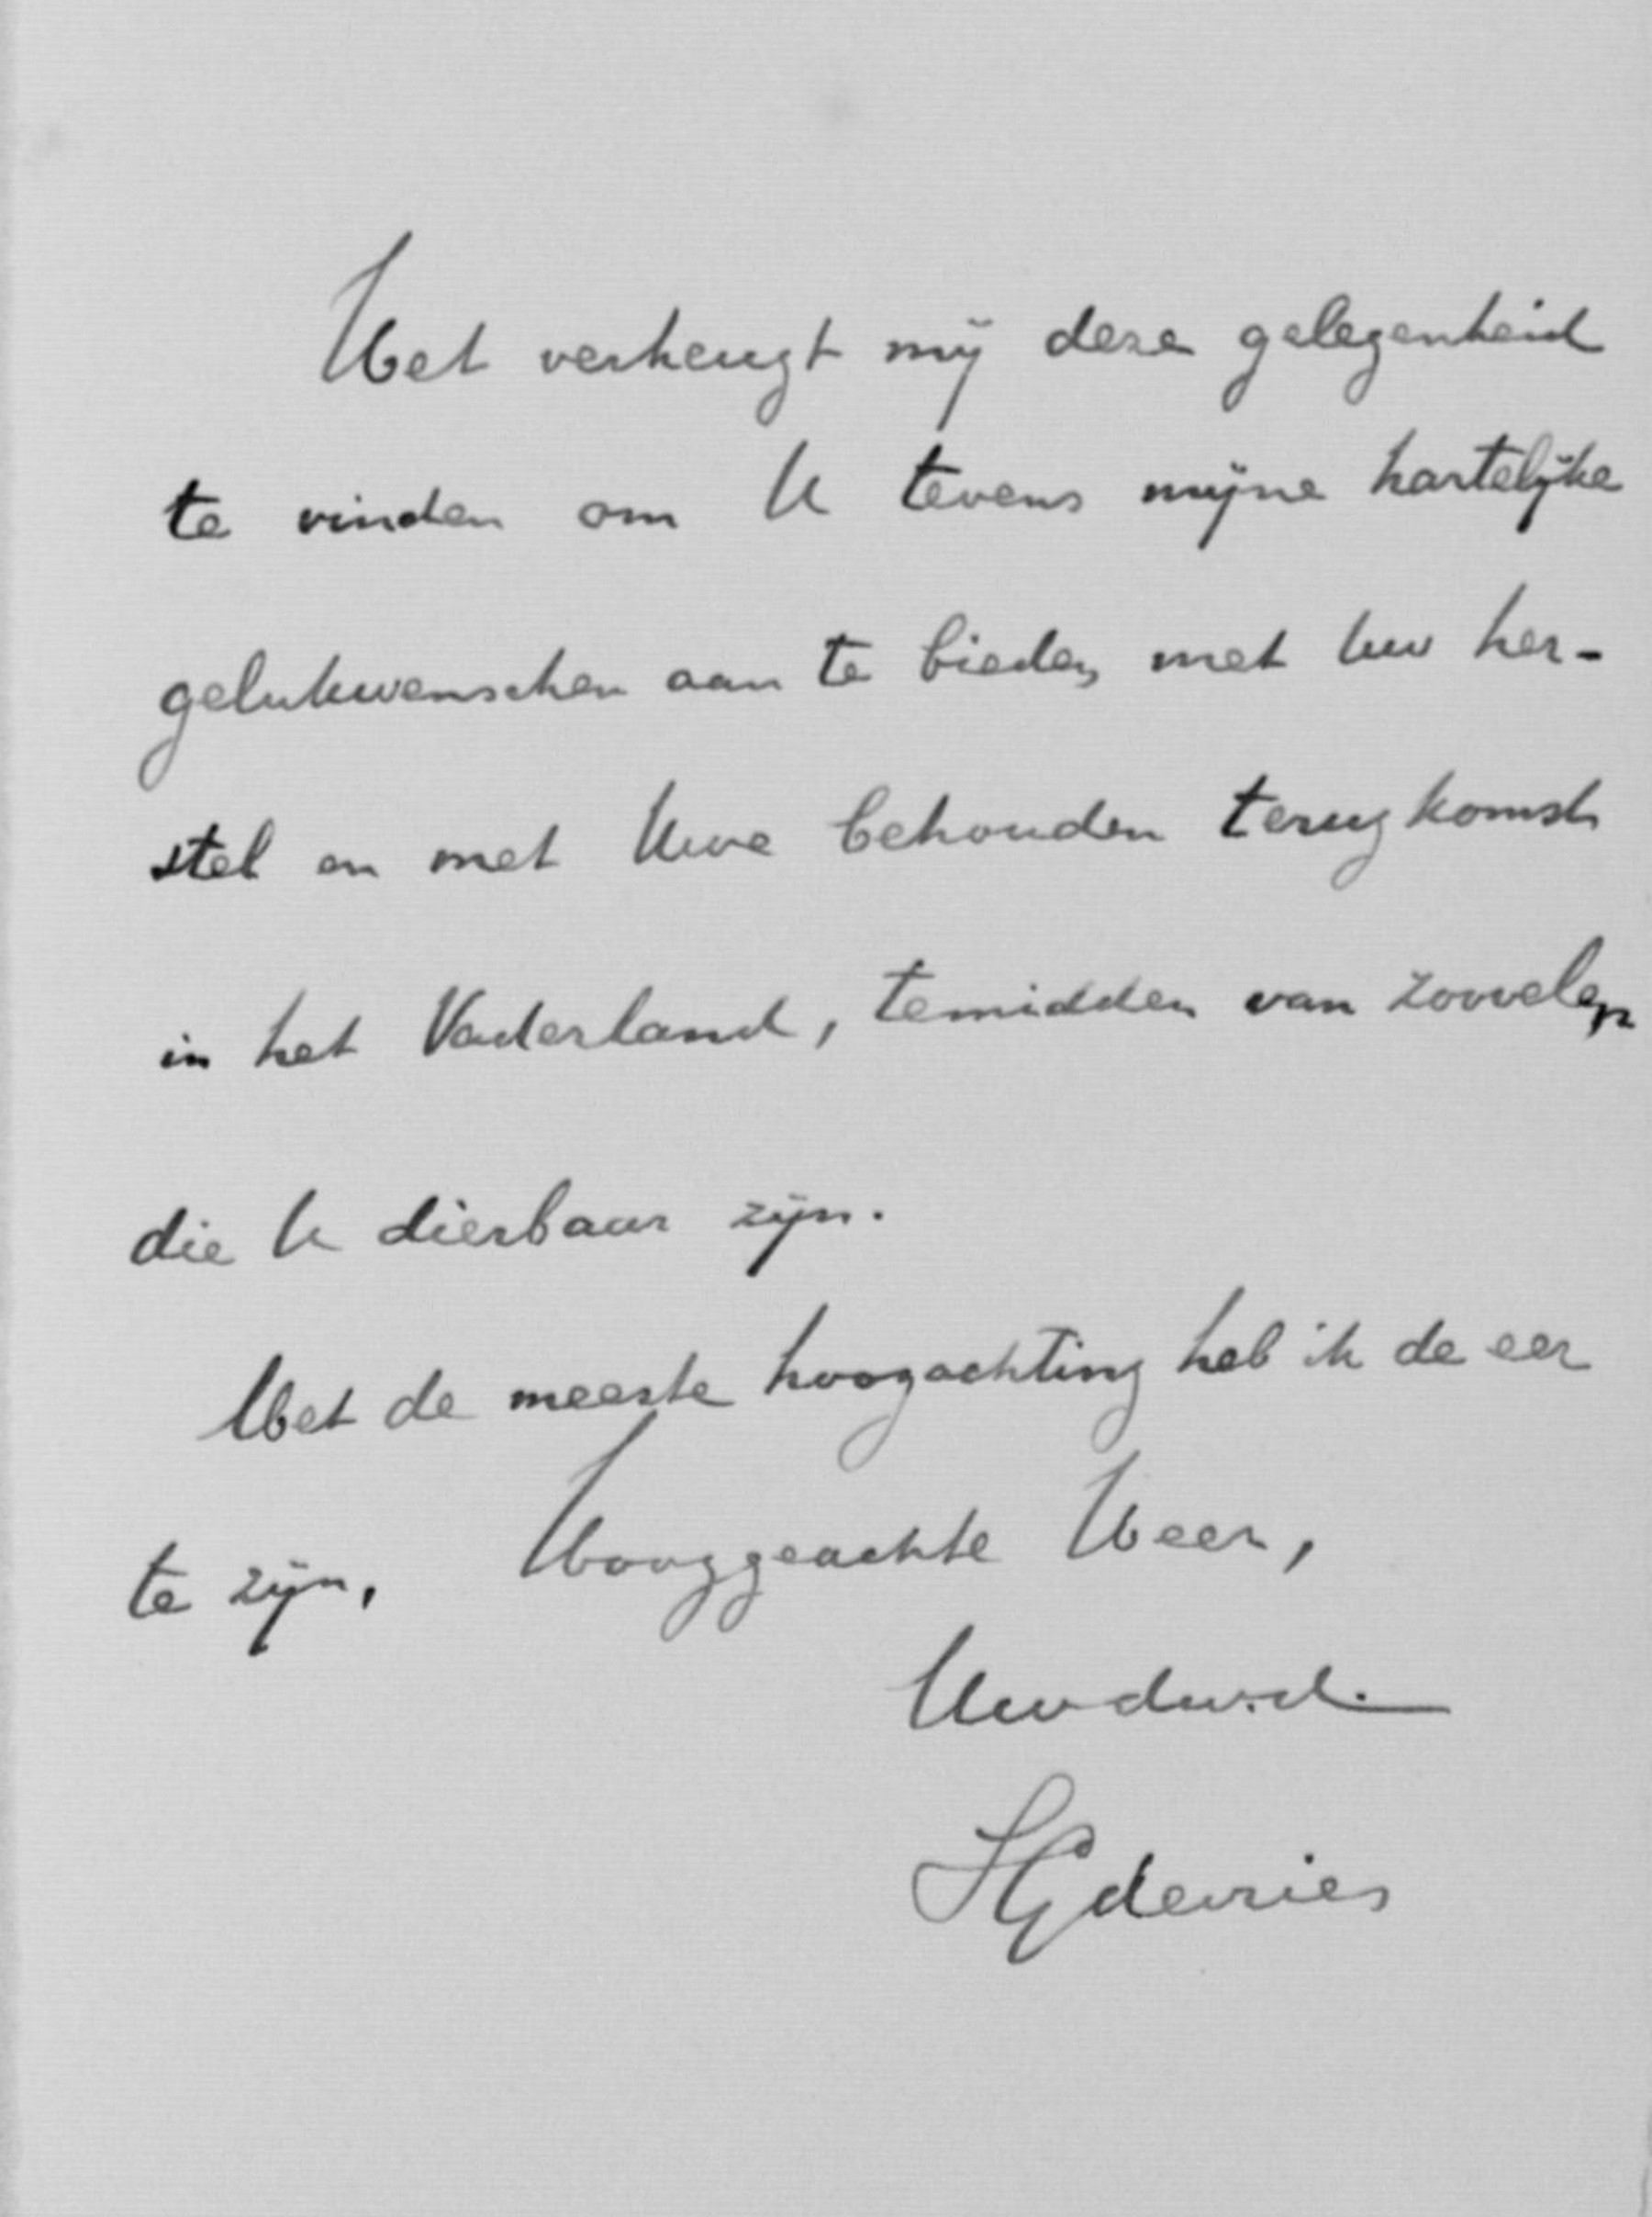 Het verheugt mij deze gelegenheid
te vinden om U tevens mijne hartelijke
gelukwenschen aan te bieden met Uw her-
stel en met Uwe behouden terugkomst
in het Vaderland, temidden van zoovelen
die U dierbaar zijn.
Met de meeste hoogachting heb ik de eer
te zijn, Hooggeachte Heer,
Uwdw.d.
de Vries